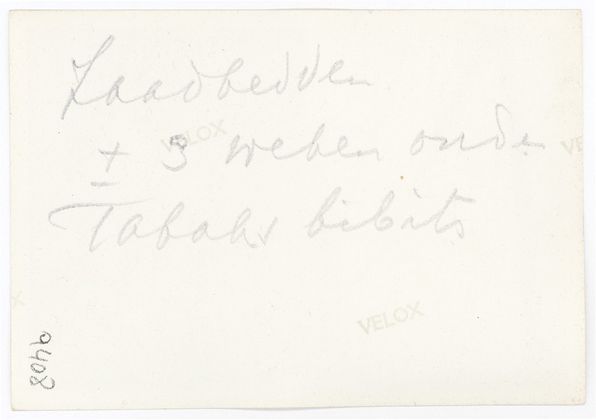 Zaadbedden
± 3 weken oude
Tabaks bibits
VELOX
VELOX
9408